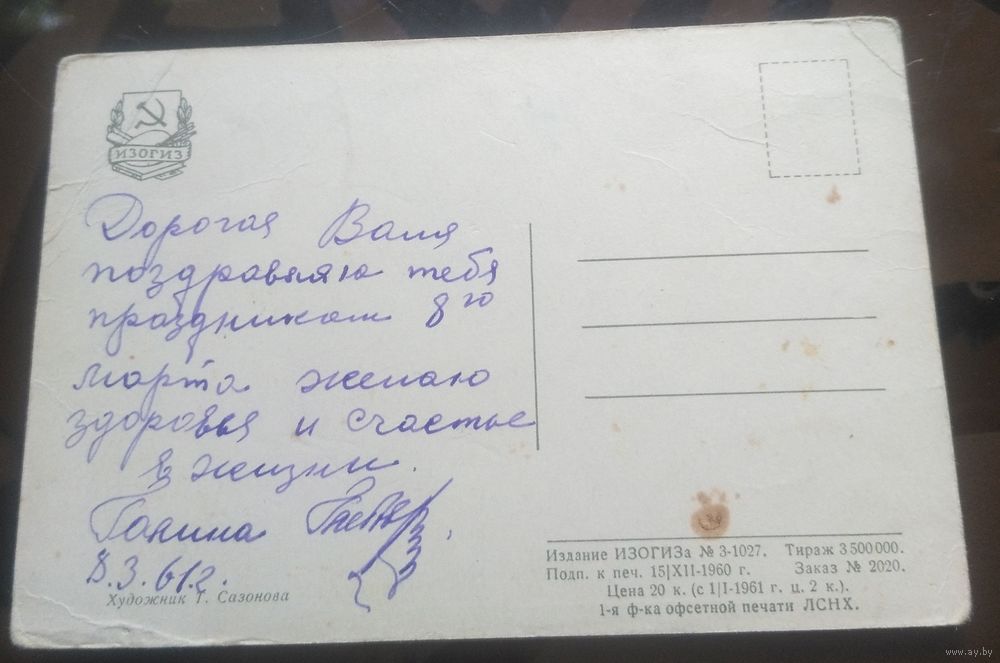 ИЗОГИЗ
Дорогая Валя
поздравляю тебя
праздником 8го
марта желаю
здоровья и счастье
в жизни.
Галина
8.3.61г.
Художник Т. Сазонова
Издание ИЗОГИЗа № 3-1027. Тираж 3 500 000.
Подп. к печ. 15|XII-1960 г. Заказ № 2020.
Цена 20 к. (с 1|I-1961 г. ц. 2 к.).
1-я ф-ка офсетной печати ЛСНХ.
www.ay.by